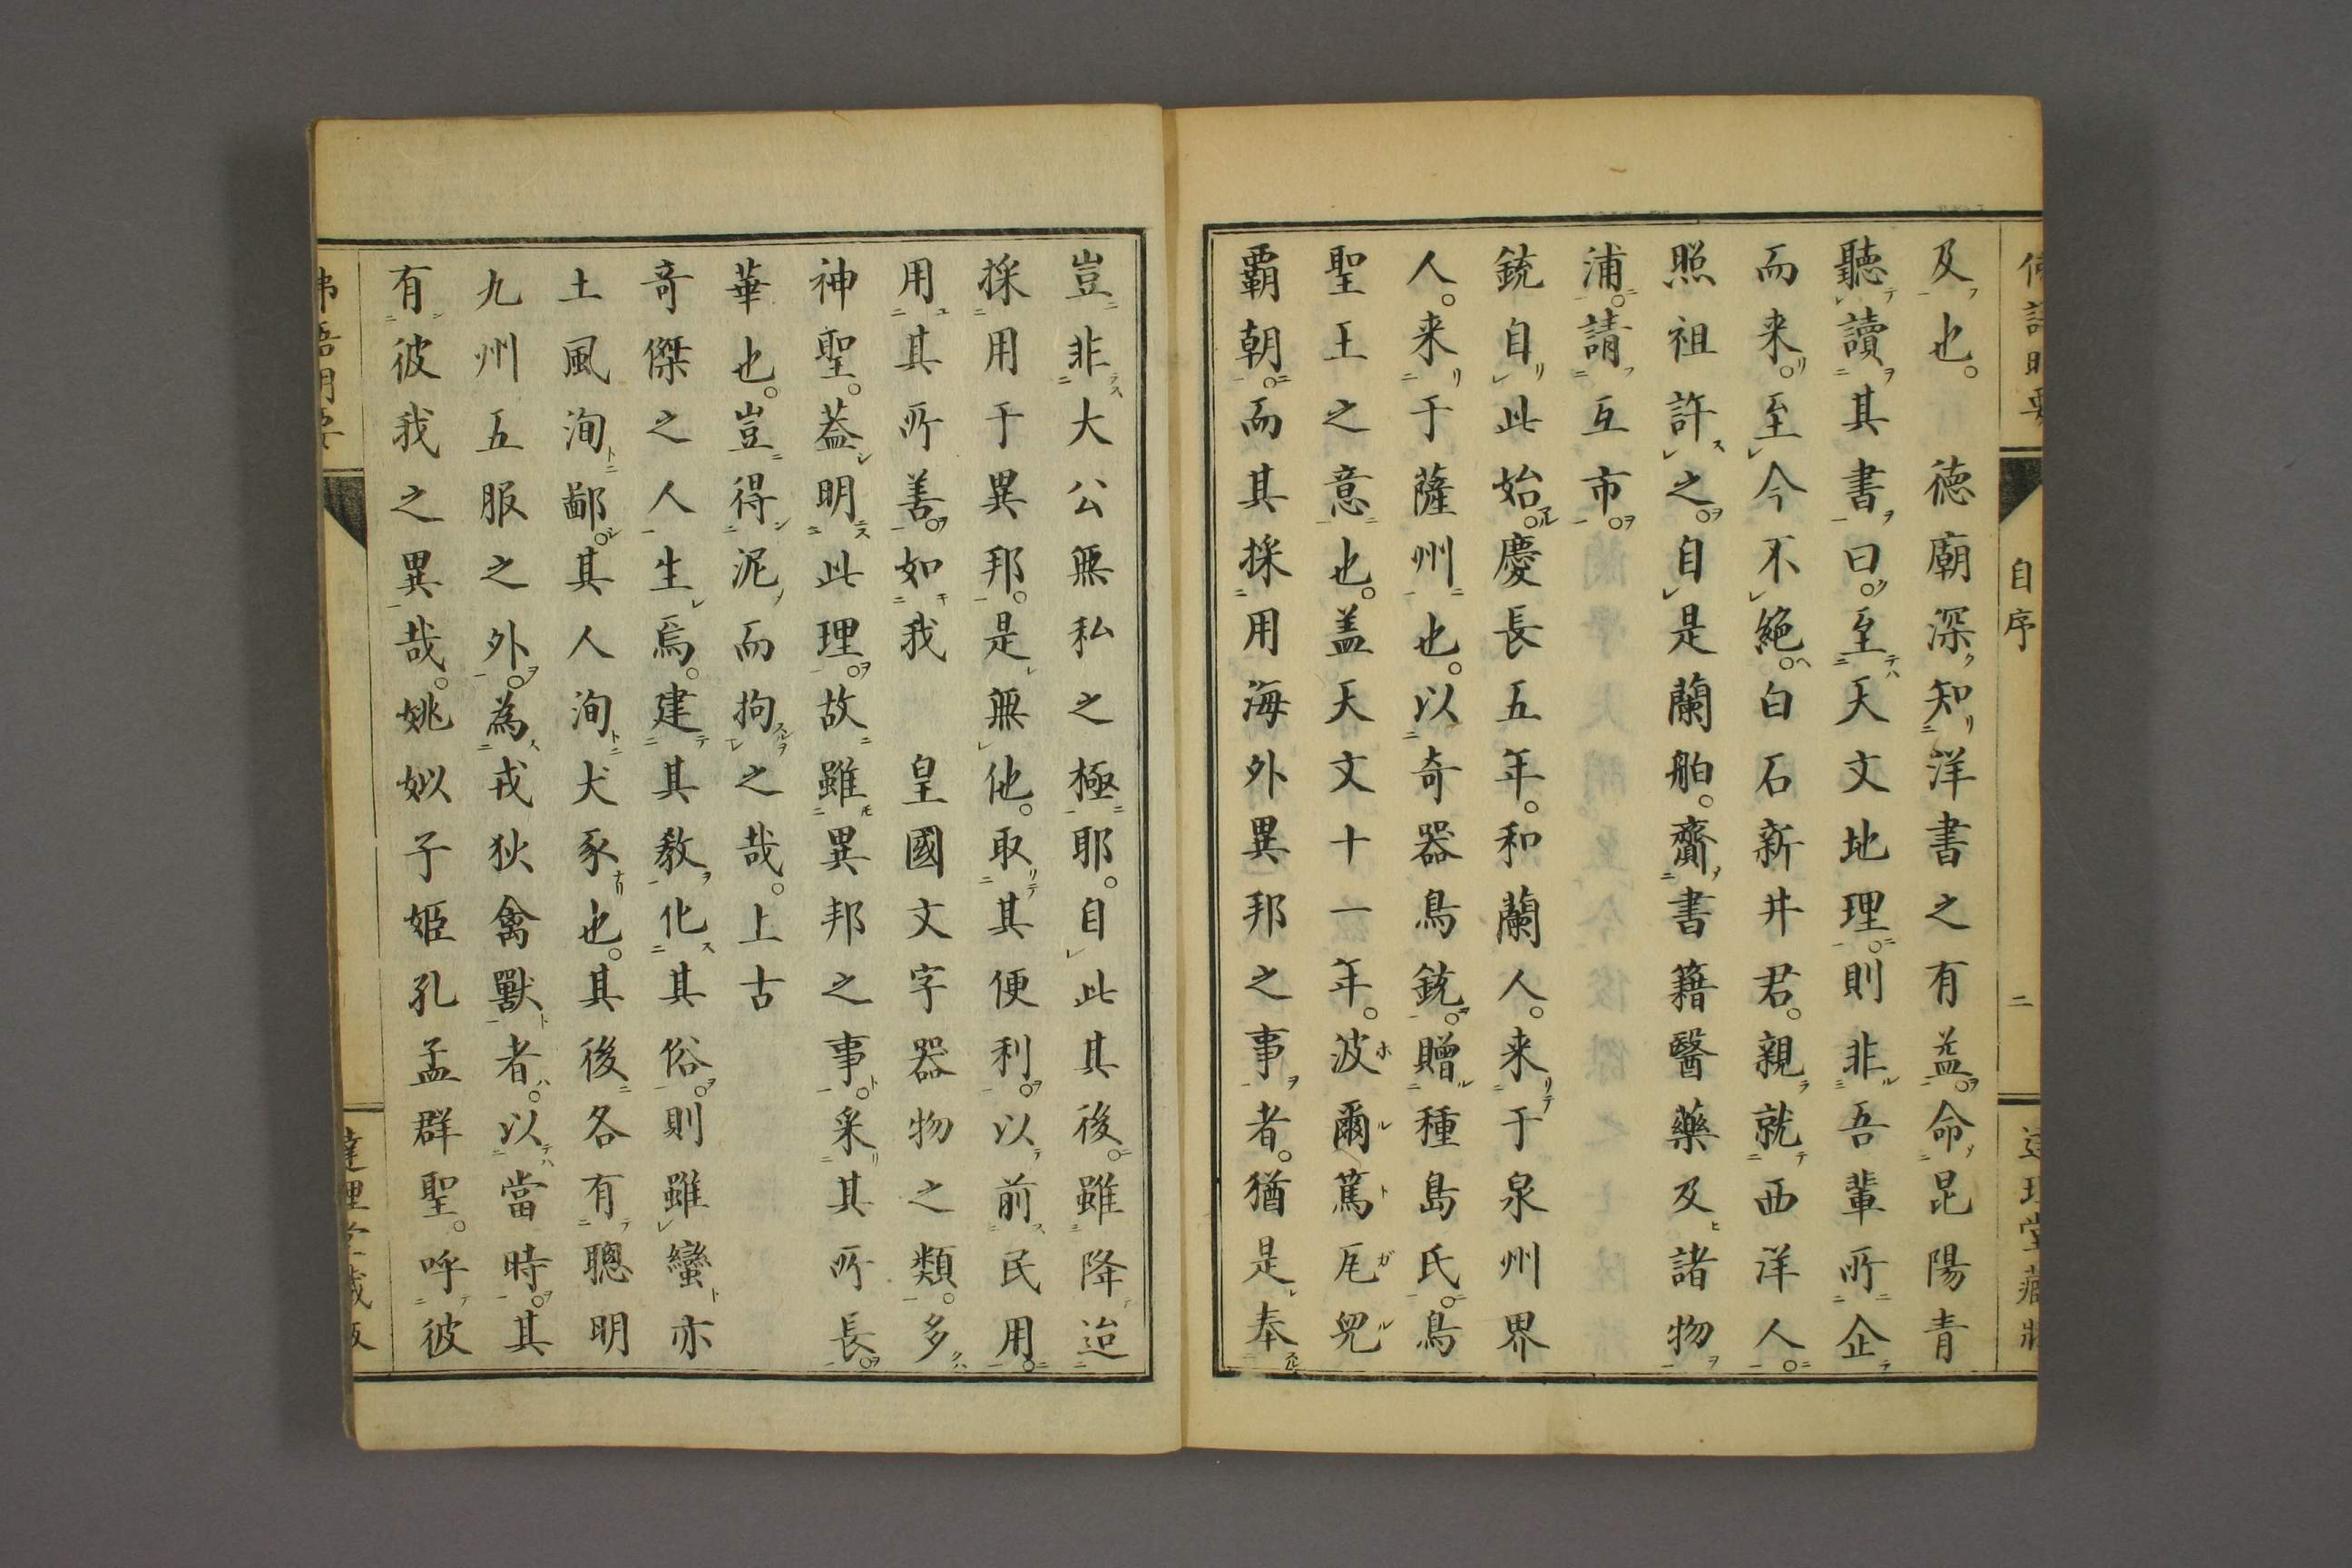 佛語明要
達理堂藏版
有彼我之異哉。姚姒子姬孔孟群聖。呼彼
九州五服之外。為戎狄禽獸者。以當時。其
土風洵鄙。其人洵犬豕也。其後各有聰明
奇傑之人生焉。建其教化其俗。則雖蠻亦
華也。豈得泥而拘之哉。上古
神聖。葢明此理。故雖異邦之事。采其所長。
用其所善。如我　皇國文字器物之類。多
採用于異邦。是無他。取其便利。以前民用。
豈非大公無私之極耶。自此其後。雖降迨
覇朝。而其採用海外異邦之事者。猶是奉
聖王之意也。盖天文十一年。波爾篤瓦兒
人。来于薩州也。以奇器鳥銃。贈種島氏。鳥
銃自此始。慶長五年。和蘭人。来于泉州界
浦。請互市。
照祖許之。自是蘭舶。齎書籍醫藥及諸物
而来。至今不絶。白石新井君。親就西洋人。
聽讀其書曰。至天文地理。則非吾輩所企
及也。　德廟深知洋書之有益。命昆陽青
佛語明要
自序
二
達理堂藏版